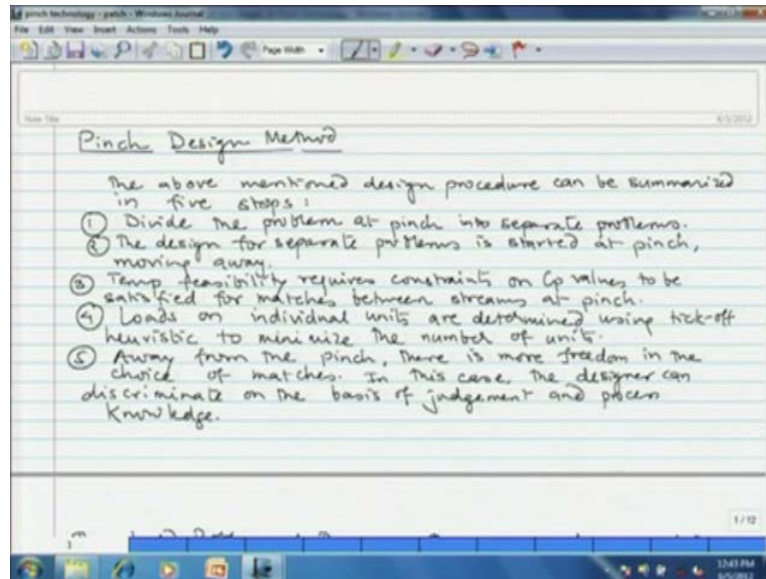 pinch technology - patch - Windows Journal
File Edit View Insert Actions Tools Help
Page Width
Note Title
6/5/2012
Pinch Design Method
The above mentioned design procedure can be summarized
in five steps:
① Divide the problem at pinch into separate problems.
② The design for separate problems is started at pinch,
moving away.
③ Temp feasibility requires constraints on Cp values to be
satisfied for matches between streams at pinch.
④ Loads on individual units are determined using tick-off
heuristic to minimize the number of units.
⑤ Away from the pinch, there is more freedom in the
choice of matches. In this case, the designer can
discriminate on the basis of judgement and process
knowledge.
1/12
12:43 PM
6/5/2012